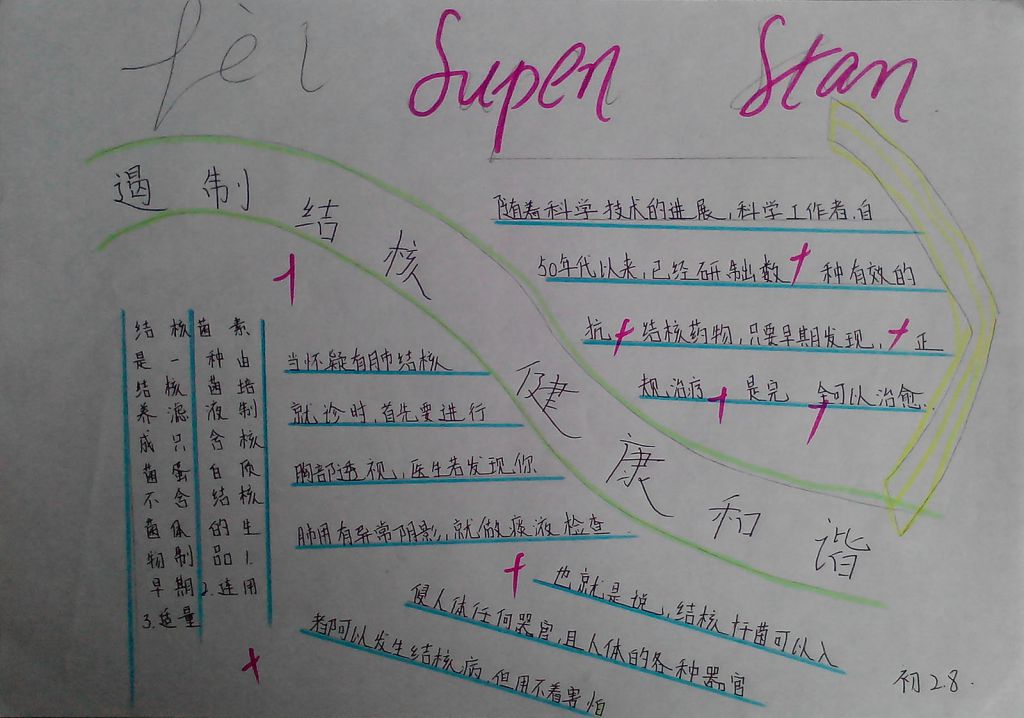 fèi Super Star
遏制结核 健康和谐
随着科学技术的进展,科学工作者,自
50年代以来,已经研制出数种有效的
抗结核药物,只要早期发现,正
规治疗是完全可以治愈.
结核菌素
是一种由
结核菌培
养滤液制
成只含核
菌蛋白质
不含结核
菌体的生
物制品1.
早期2.连用
3.适量
当怀疑有肺结核
就诊时,首先要进行
胸部透视,医生若发现你
肺用有异常阴影,就做痰液检查
也就是说,结核杆菌可以入
侵人体任何器官,且人体的各种器官
都可以发生结核病,但用不着害怕
初28.